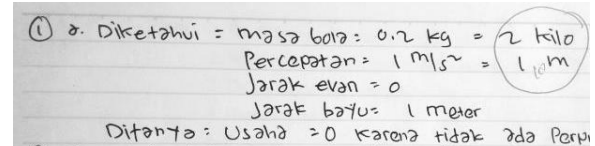 ① a. Diketahui = masa bola: 0.2 kg = 2 kilo
Percepatan = 1 m/s² = 1 m
Jarak evan = 0
Jarak bayu = 1 meter
Ditanya : Usaha = 0 karena tidak ada